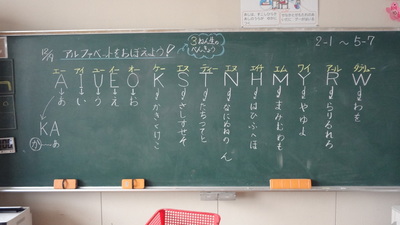 アルファベットをおぼえよう!
3年生の
べんきょう
2-1 〜 5-7
エー アイ ユー イー オー ケー エス ティー エヌ エイチ エム ワイ アール ダブリュー
A I U E O K S T N H M Y R W
あ い う え お かきくけこ さしすせそ たちつてと なにぬねの ん はひふへほ まみむめも やゆよ らりるれろ わを
KA
か あ